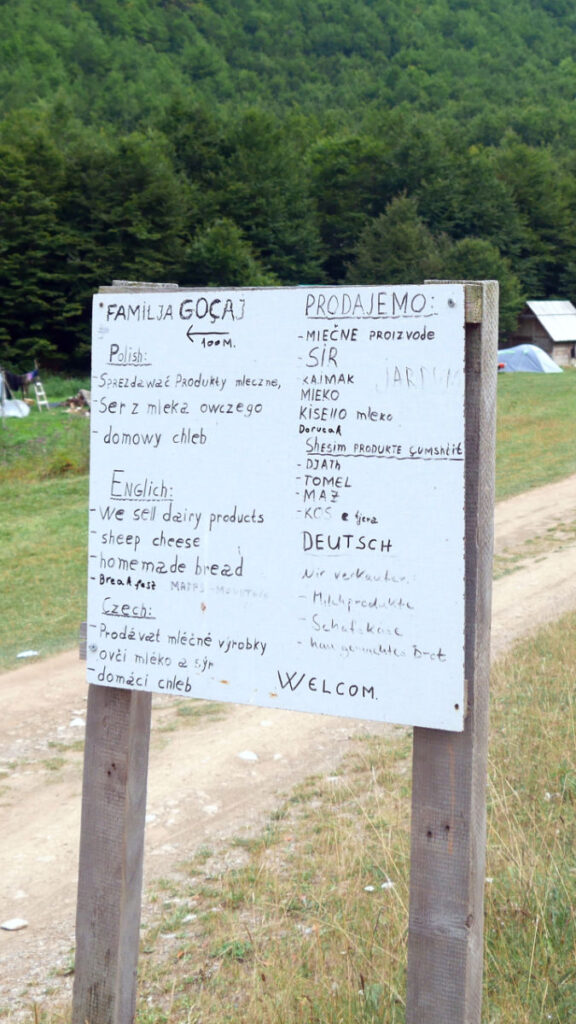 FAMILJA GOÇAJ
100M.
Polish:
- SPRZDAWAĆ PRODUKTY MLECZNE,
- Ser z mleka owczego
- domowy chleb
Englich:
- We sell dairy products
- sheep cheese
- homemade bread
- Breakfast MAPPS-
Czech:
- Prodávat mléčné výrobky
- ovčí mléko a sýr
- domáci chleb
PRODAJEMO:
- MlEČNE PROIZVODE
- SIR
- KAJMAK JARDUM
MLEKO
KISELLO mleko
Dorucak
Shesim PRODUKTE ÇUMSHTIT
- DJATH
- TOMEL
- MAZ
- KOS e tjera
DEUTSCH
Wir verkaufen:
- Milchprodukte
- Schafskäse
- B-ot
WELCOM.